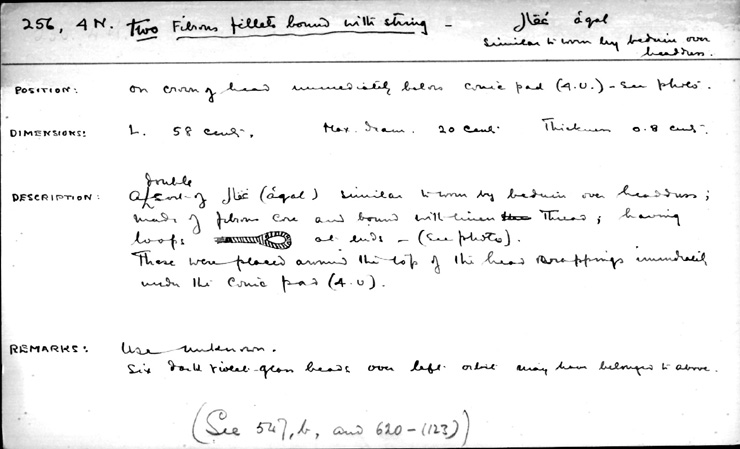 256, 4N. Two Fibrous fillets bound with string – âgal
Similar to worn by beduin over
headdress.
POSITION: On crown of head immediately below conic pad (4.U.) – See photo.
DIMENSIONS: L. 58 cents. Max. diam. 20 cents. Thickness 0.8 cents.
double
DESCRIPTION: A sort of (âgal) similar to worn by beduin over headdress;
made of fibrous core and bound with linen thread; having
loops at ends – (See photo).
These were placed around the top of the head wrappings immediately
under the conic pad (4.U).
REMARKS: Use unknown.
Six dark violet-glass beads over left orbit may have belonged to above.
(See 547, b, and 620–(123))